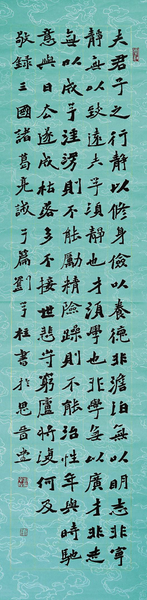 夫君子之行靜以修身儉以養德非澹泊無以明志非寧
靜無以致遠夫學須靜也才須學也非學無以廣才非志
無以成學淫漫則不能勵精險躁則不能治性年與時馳
意與日去遂成枯落多不接世悲守窮廬將復何及
敬錄三國諸葛亮誡子篇劉子柱書於思晉堂